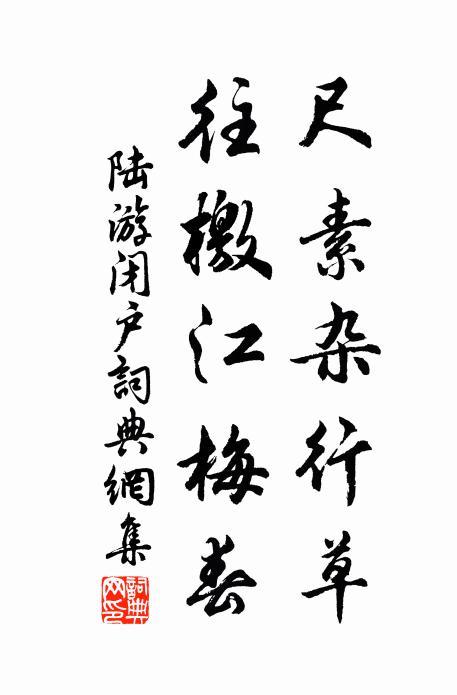 尺素杂行草
往檄江梅春
陆游闭户詞典網集
詞典网印